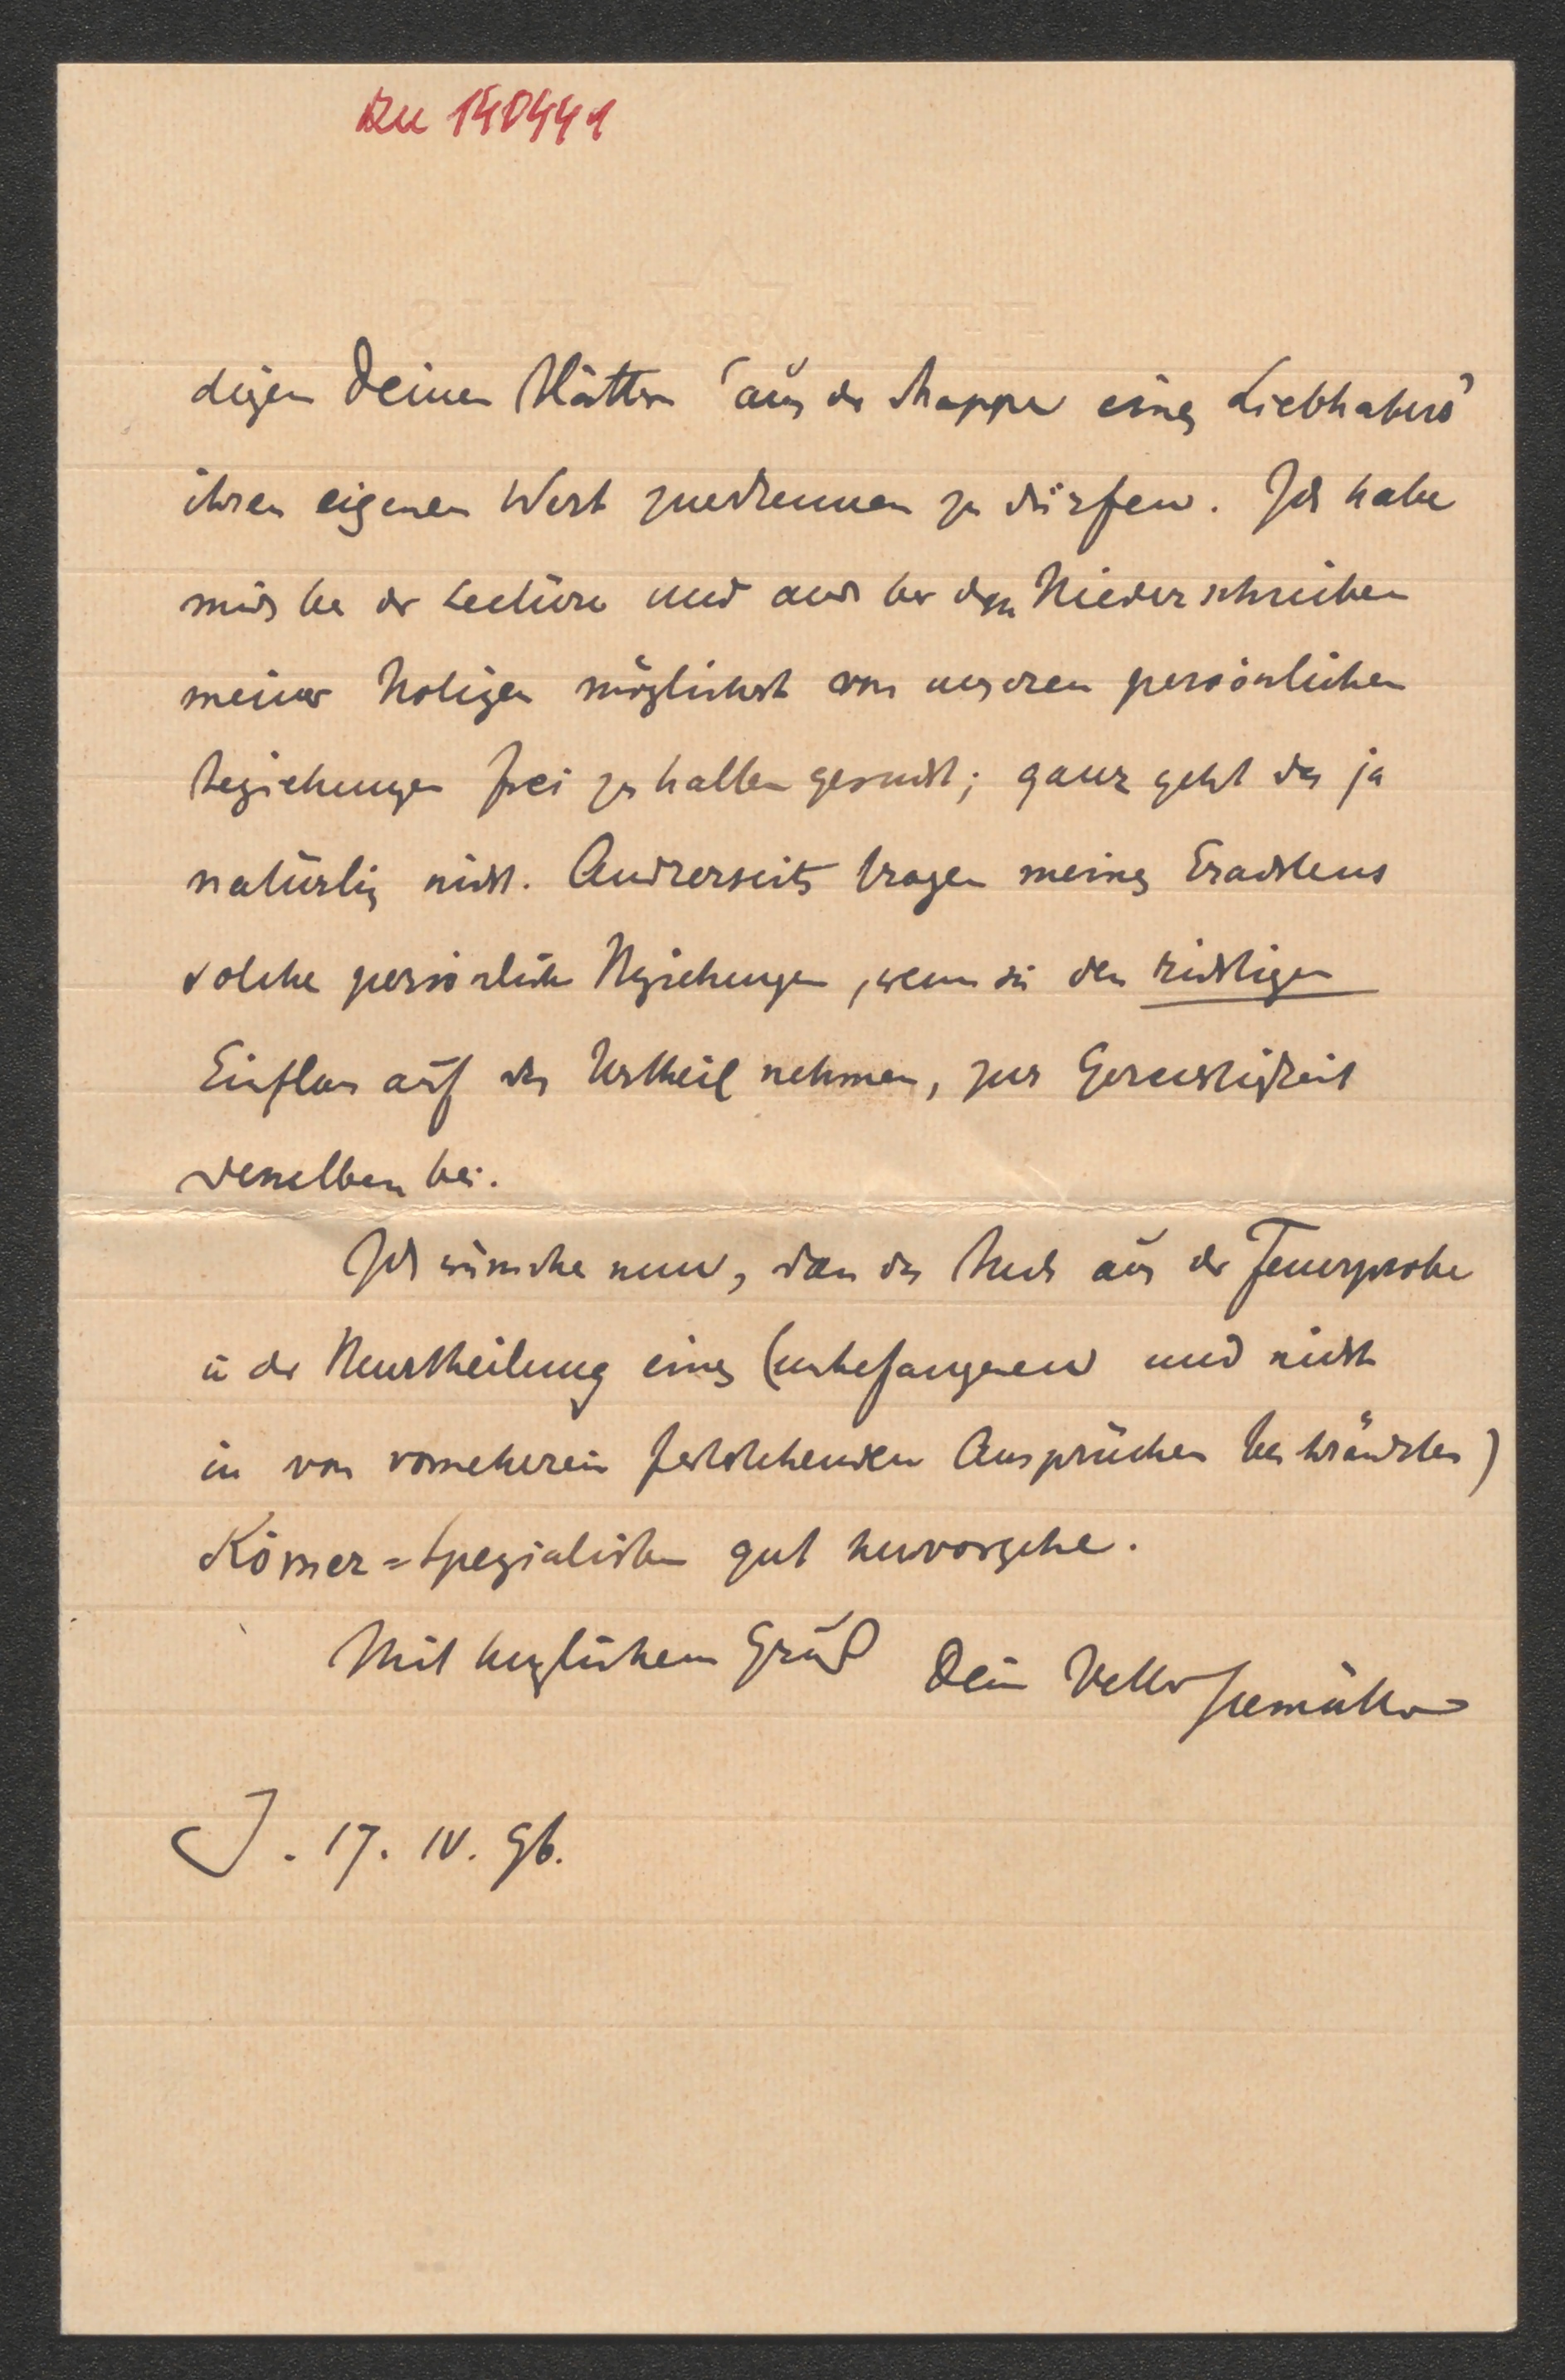 zu 140441
digen Deinen Blättern "aus der Mappe eines Liebhabers"
ihren eigenen Wert zuerkennen zu dürfen. Ich habe
mich bei der Lectüre und auch bei dem Niederschreiben
meiner Notizen möglichst von unseren persönlichen
Beziehungen frei zu halten gesucht; ganz geht das ja
natürlich nicht. Andrerseits tragen meines Erachtens
solche persönliche Beziehungen, wenn sie den richtigen
Einfluss auf das Urtheil nehmen, zur Gerechtigkeit
desselben bei.
Ich wünsche nun, dass das Buch aus der Feuerprobe
in der Beurtheilung eines (unbefangenen und nicht
in von vorneherein feststehenden Ansprüchen beschränkten)
Körner=Spezialisten gut hervorgehe.
Mit herzlichem Gruß Dein Vetter Seemüller
J. 17. IV. 96.